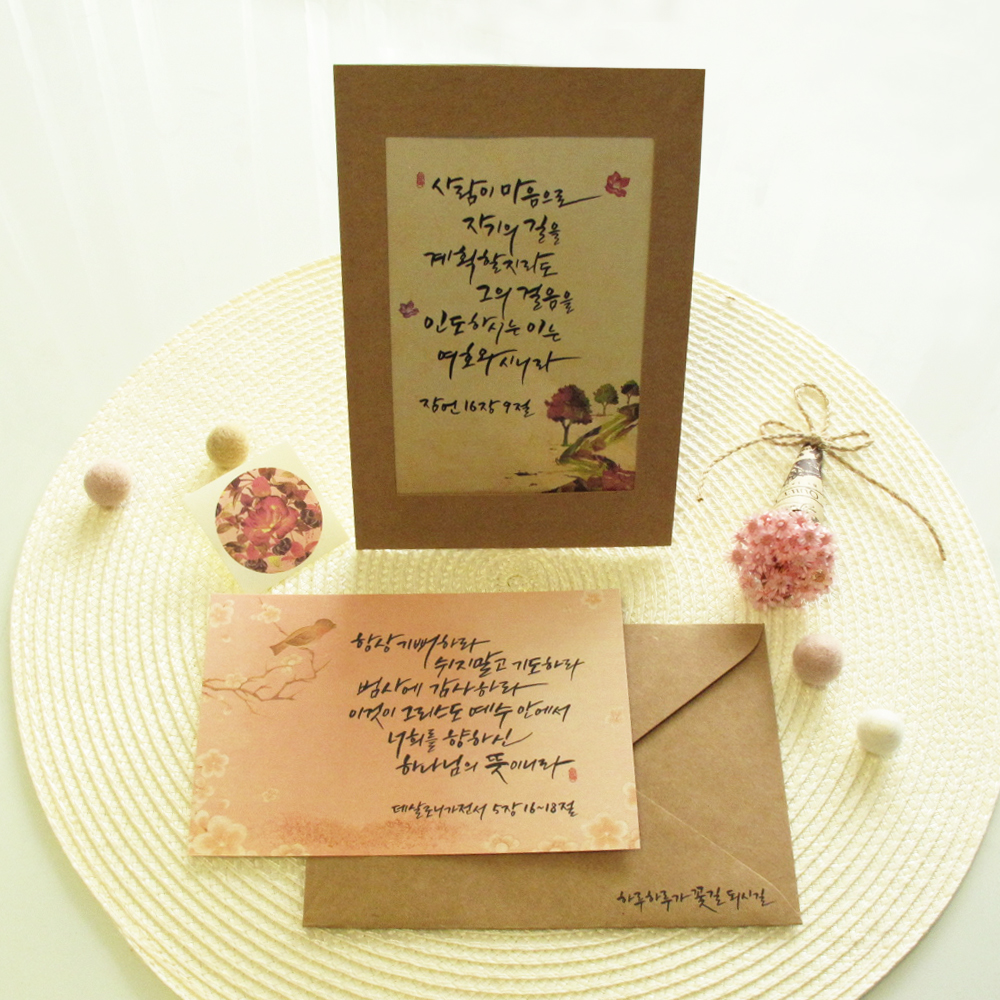 사람이 마음으로
자기의 길을
계획할지라도
그의 걸음을
인도하시는 이는
여호와시니라
잠언 16장 9절
항상 기뻐하라
쉬지말고 기도하라
범사에 감사하라
이것이 그리스도 예수 안에서
너희를 향하신
하나님의 뜻이니라
데살로니가전서 5장 16~18절
하루하루가 꽃길 되시길